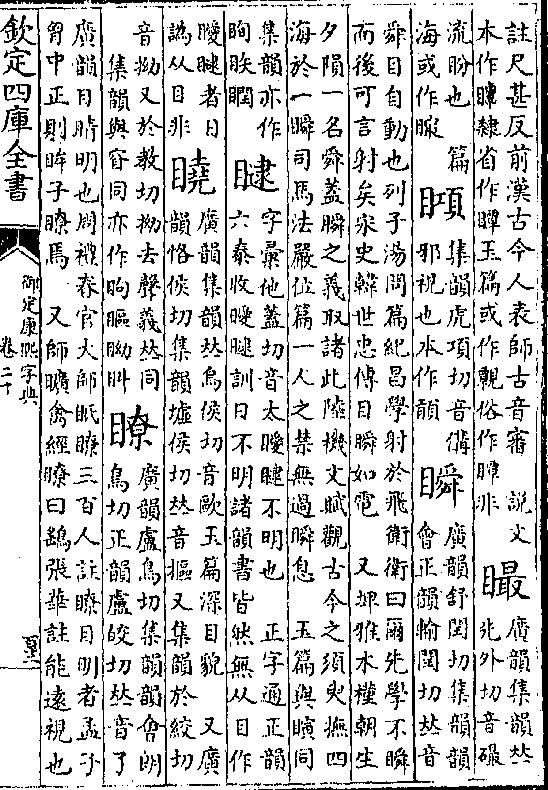 註尺甚反前漢古今人表師古音審　說文
本作瞫隸省作瞫玉篇或作覾俗作瞫非
廣韻集韻𠀤
外切音
流盼也　篇
海或作
集韻虎項切音傋
邪視也本作䪼
瞬
廣韻舒閏切集韻韻
會正韻輸閏切𠀤音
舜目自動也列子湯問篇紀昌學射於飛衛衛曰爾先學不瞬
而後可言射矣宋史韓世忠傳目瞬如電　又埤雅木槿朝生
夕隕一名舜蓋瞬之義取諸此陸機文賦觀古今之須臾撫四
海於一瞬司馬法嚴位篇一人之禁無過瞬息　玉篇與瞚同
集韻亦作
眴眣瞤
字彙他蓋切音太曖曃不明也　正字通正韻
六泰收曖曃訓日不明諸韻書皆然無从目作
者日
譌从目非
廣韻集韻𠀤烏侯切音歐玉篇深目貌　又廣
韻恪侯切集韻墟侯切𠀤音摳又集韻於絞切
音拗又於教切拗去聲義𠀤同
集韻與窅同亦作眗瞘
瞭
廣韻盧鳥切集韻韻會朗
鳥切正韻盧皎切𠀤音了
廣韻目睛明也周禮春官大師眡瞭三百人註瞭目明者孟子
胷中正則眸子瞭焉　又師曠禽經瞭曰鷂張華註能遠視也
欽定四庫全書
御定康熙字典
卷二十